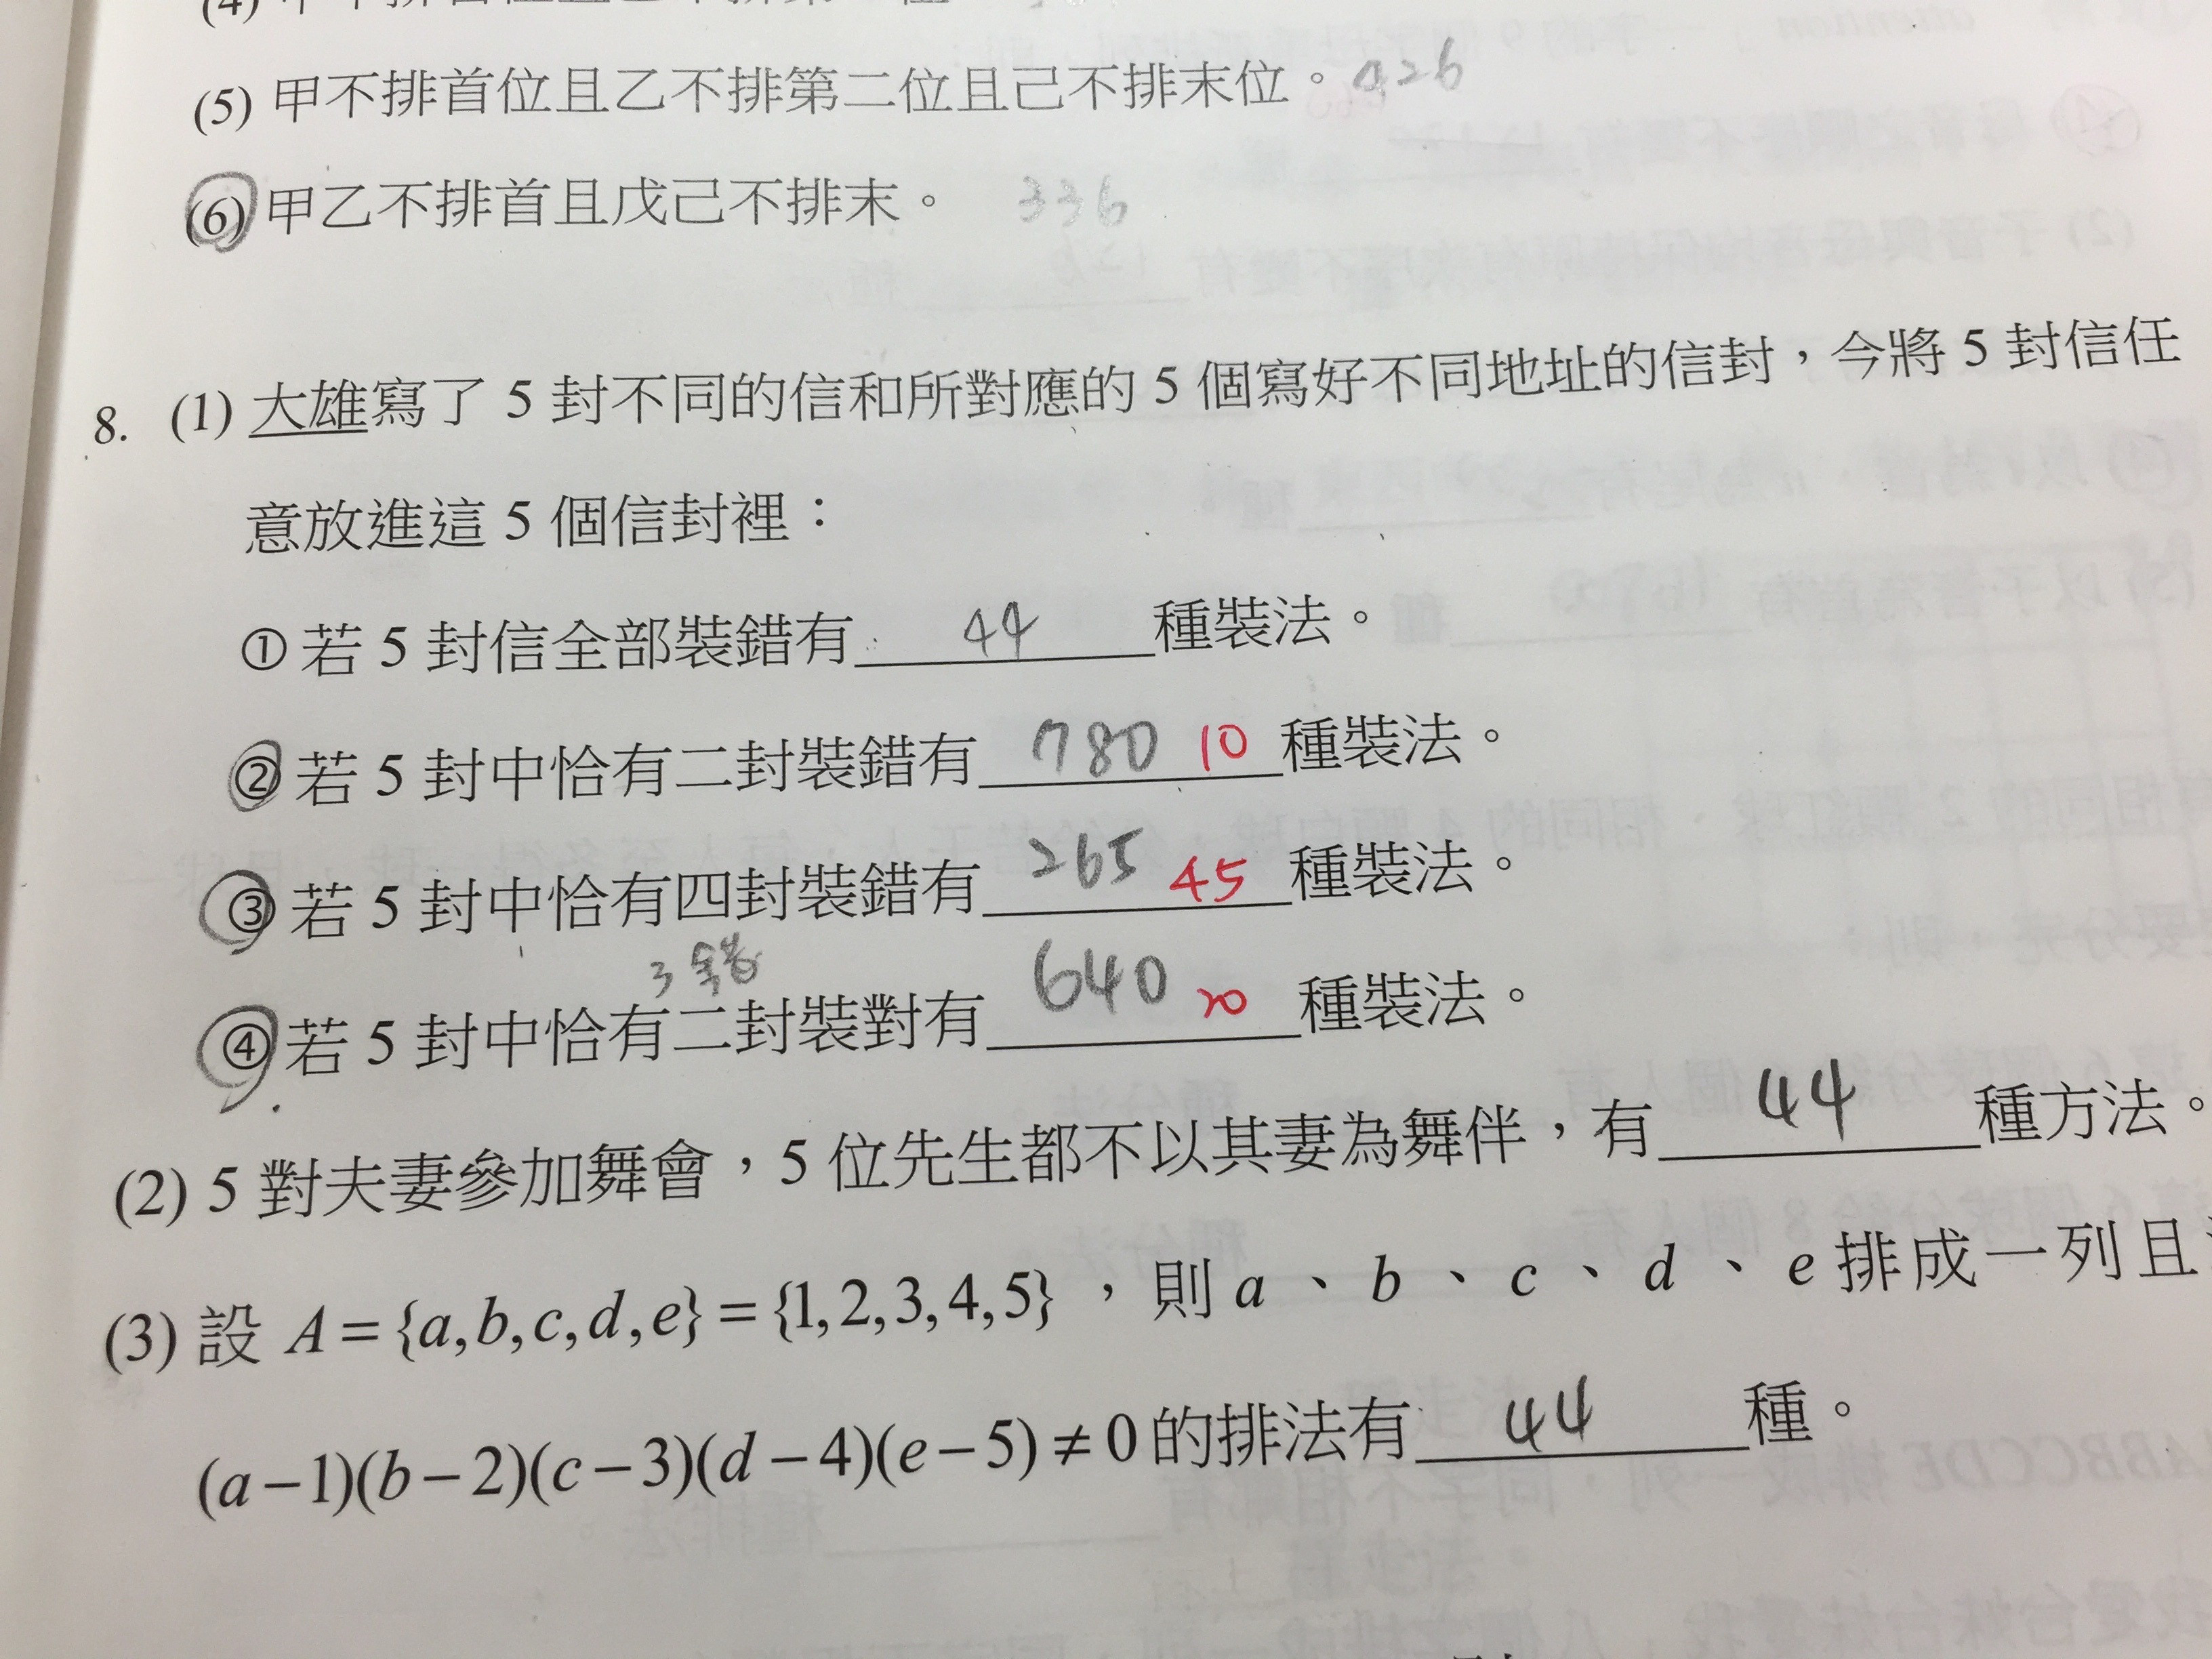 (5) 甲不排首位且乙不排第二位且己不排末位。426
(6) 甲乙不排首且戊己不排末。 336
8. (1) 大雄寫了 5 封不同的信和所對應的 5 個寫好不同地址的信封，今將 5 封信任
意放進這 5 個信封裡：
① 若 5 封信全部裝錯有 44 種裝法。
② 若 5 封中恰有二封裝錯有 780 10 種裝法。
③ 若 5 封中恰有四封裝錯有 265 45 種裝法。
3 錯
④ 若 5 封中恰有二封裝對有 640 20 種裝法。
(2) 5 對夫妻參加舞會，5 位先生都不以其妻為舞伴，有 44 種方法。
(3) 設 A = {a,b,c,d,e} = {1,2,3,4,5}，則 a、b、c、d、e 排成一列且
(a−1)(b−2)(c−3)(d−4)(e−5) ≠ 0 的排法有 44 種。